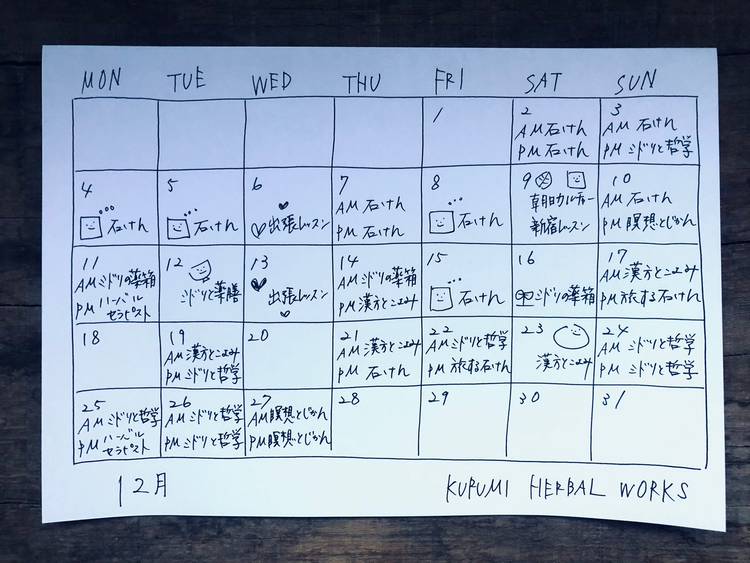 MON TUE WED THU FRI SAT SUN
1
2
AM 石けん
PM 石けん
3
AM 石けん
PM ミドリと哲学
4
石けん
5
石けん
6
出張レッスン
7
AM 石けん
PM 石けん
8
石けん
9
朝日カルチャー
新宿レッスン
10
AM 石けん
PM 瞑想とじかん
11
AM ミドリの薬箱
PM ハーバル
セラピスト
12
ミドリと薬膳
13
出張レッスン
14
AM ミドリの薬箱
PM 漢方とこよみ
15
石けん
16
ミドリの薬箱
17
AM 漢方とこよみ
PM 旅する石けん
18
19
AM 漢方とこよみ
PM ミドリと哲学
20
21
AM 漢方とこよみ
PM 石けん
22
AM ミドリと哲学
PM 旅する石けん
23
漢方とこよみ
24
AM ミドリと哲学
PM ミドリと哲学
25
AM ミドリと哲学
PM ハーバル
セラピスト
26
AM ミドリと哲学
PM ミドリと哲学
27
AM 瞑想とじかん
PM 瞑想とじかん
28
29
30
31
12月
KURUMI HERBAL WORKS